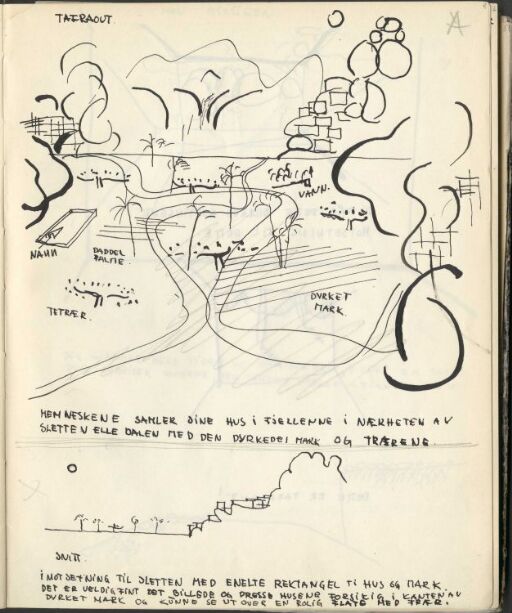 TAFRAOUT.
A
VANN.
VANN
DADDEL
PALME.
TETRÆR.
DYRKET
MARK.
MENNESKENE SAMLER SINE HUS I FJELLENNE I NÆRHETEN AV
SLETTEN ELLE DALEN MED DEN DYRKEDE MARK OG TRÆRENE.
SNITT.
I MOTSETNING TIL SLETTEN MED ENELTE REKTANGEL TI HUS OG MARK.
DET ER VELDIG FINT DET BILLEDE OG DRESSE HUSENE FORSIKIG I KANTEN AV
DYRKET MARK OG KUNNE SE UT OVER EN ROLIG FLATE MED TRÆR.